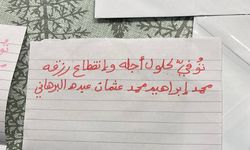 تُوفيَّ لحلول أجله وإنقطاع رزقه
محمد إبراهيم محمد عثمان عبده البرهاني